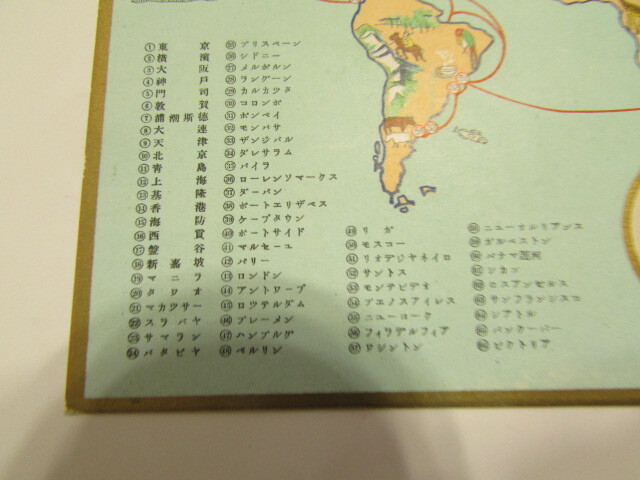 ①東京
②横濱
③大阪
④神戸
⑤門司
⑥敦賀
⑦浦潮斯德
⑧大連
⑨天津
⑩北京
⑪青島
⑫上海
⑬基隆
⑭香港
⑮海防
⑯西貢
⑰盤谷
⑱新嘉坡
⑲マニラ
⑳タワオ
㉑マカツサー
㉒スラバヤ
㉓サマラン
㉔バタビヤ
㉕ブリスベーン
㉖シドニー
㉗メルボルン
㉘ラングーン
㉙カルカツタ
㉚コロンボ
㉛ボンベイ
㉜モンバサ
㉝ザンジバル
㉞ダレサラム
㉟バイラ
㊱ローレンソマークス
㊲ダーバン
㊳ポートエリザベス
㊴ケープタウン
㊵ポートサイド
㊶マルセーユ
㊷パリー
㊸ロンドン
㊹アントワープ
㊺ロツテルダム
㊻ブレーメン
㊼ハンブルグ
㊽ベルリン
㊾リガ
㊿モスコー
リオデジヤネイロ
サントス
モンテビデオ
ブエノスアイレス
ニユーヨーク
フイラデルフイア
ワシントン
ニユーオルリアンス
ガルベストン
パナマ運河
シカゴ
ロスアンゼルス
サンフランシスコ
シアトル
バンクーバー
ビクトリア